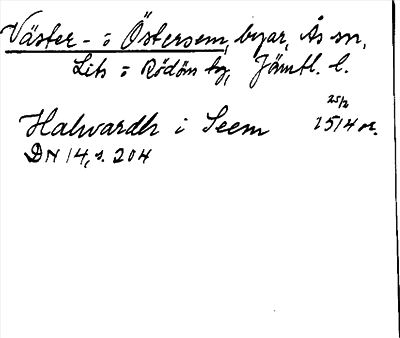 Väster- o Östersem, byar, Ås sn,
Lits o Rödöns tg, Jämtl. l.
Halwardh i Seem 25/2 1514 or.
DN 14, s. 204